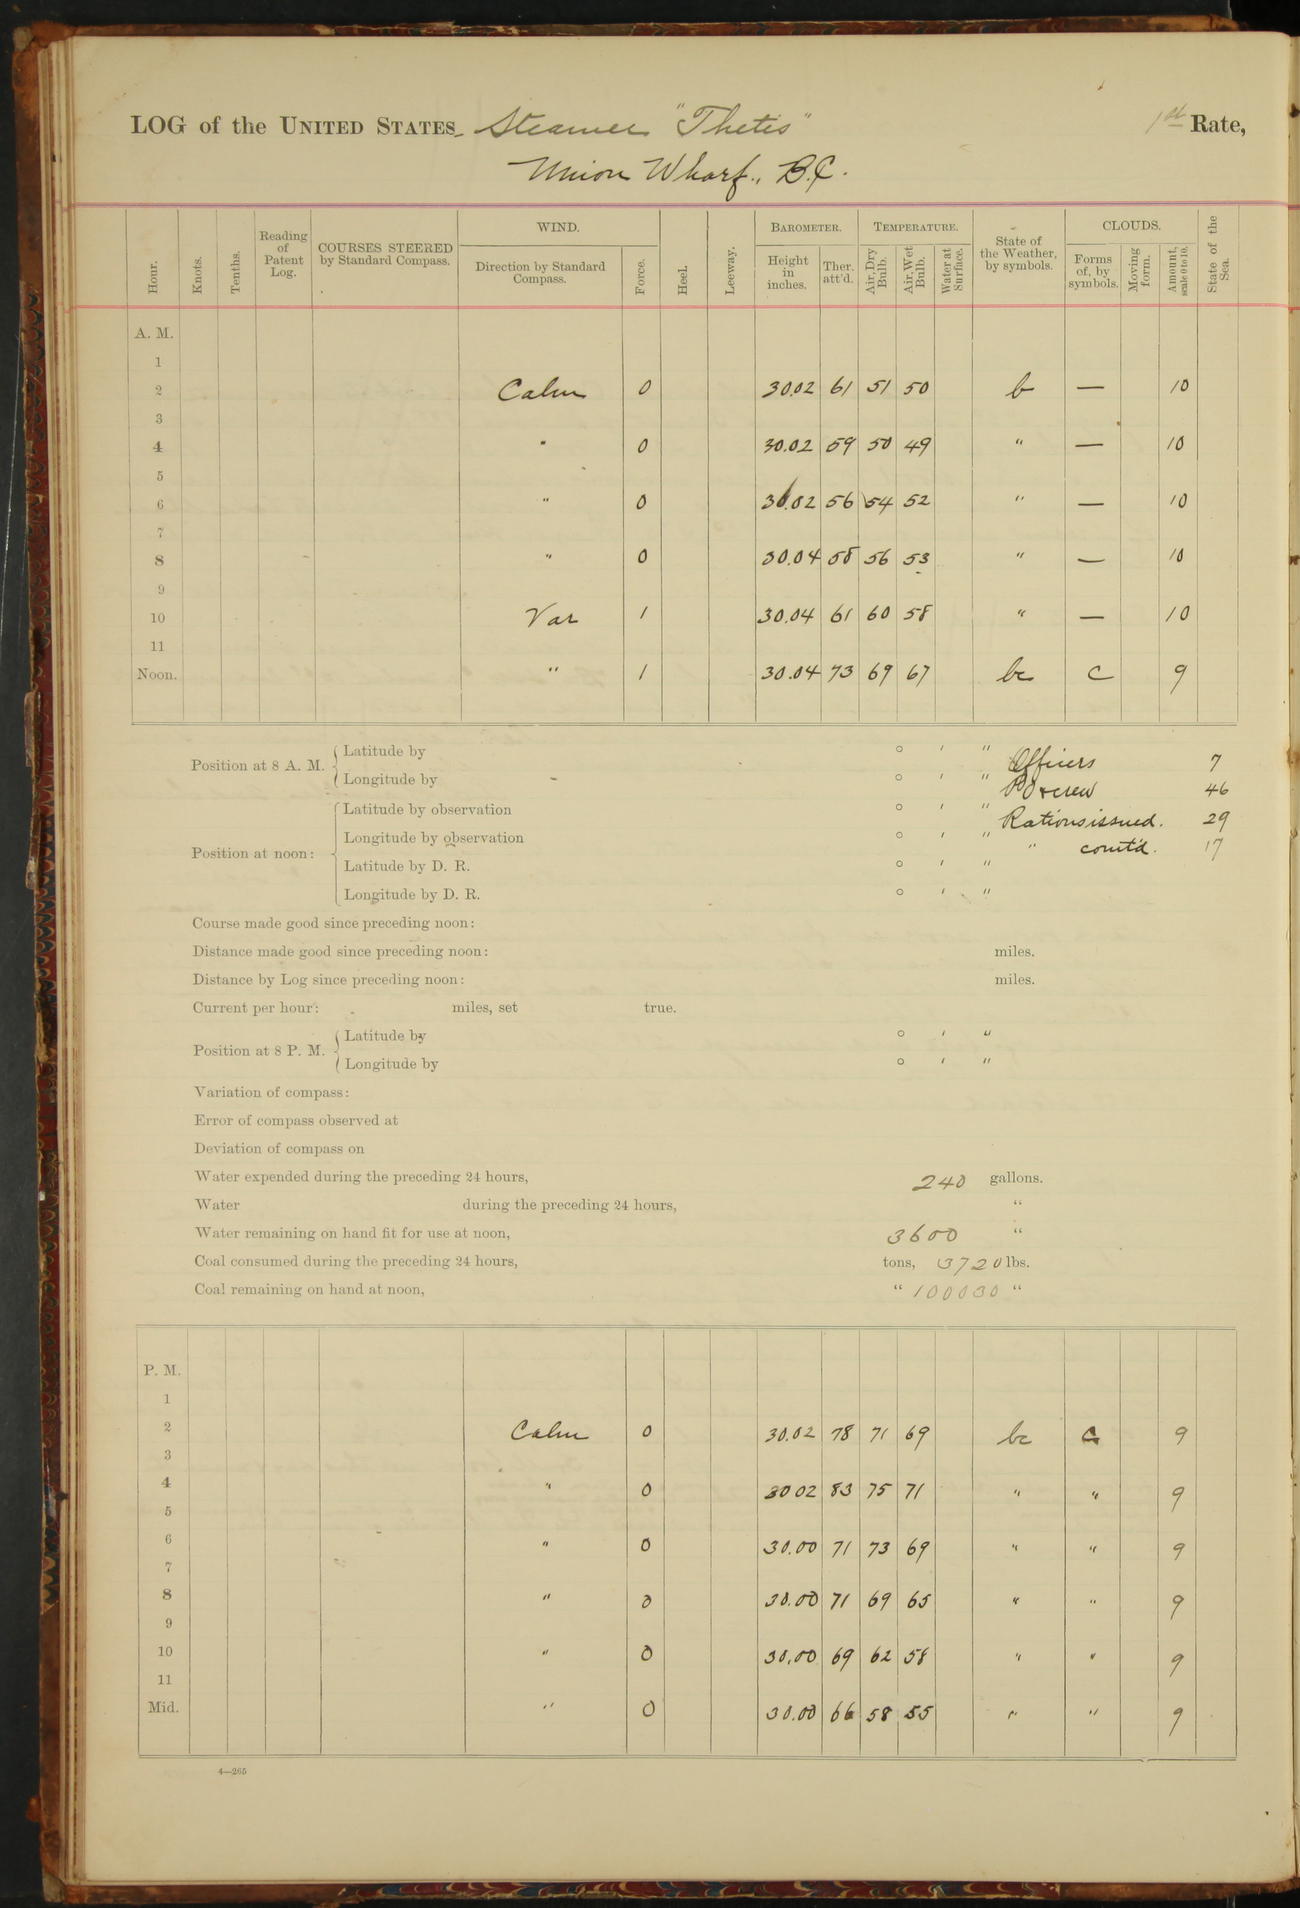 LOG of the UNITED STATES Steamer "Thetis" 1st Rate,
Union Wharf., B.C.
Hour. Knots. Tenths. Reading of Patent Log. COURSES STEERED by Standard Compass. WIND. Direction by Standard Compass. Force. Heel. Leeway. BAROMETER. Height in inches. Ther. att'd. TEMPERATURE. Air, Dry Bulb. Air, Wet Bulb. Water at Surface. State of the Weather, by symbols. CLOUDS. Forms of, by symbols. Moving form. Amount, scale 0 to 10. State of the Sea.
A. M.
1
2 Calm 0 30.02 61 51 50 b — 10
3
4 " 0 30.02 59 50 49 " — 10
5
6 " 0 30.02 56 54 52 " — 10
7
8 " 0 30.04 58 56 53 " — 10
9
10 Var 1 30.04 61 60 58 " — 10
11
Noon. " 1 30.04 73 69 67 bc C 9
Position at 8 A. M. { Latitude by ° ′ ″ Officers 7
Longitude by ° ′ ″ PO & crew 46
Position at noon: { Latitude by observation ° ′ ″ Rations issued. 29
Longitude by observation ° ′ ″ " comt'd. 17
Latitude by D. R. ° ′ ″
Longitude by D. R. ° ′ ″
Course made good since preceding noon:
Distance made good since preceding noon: miles.
Distance by Log since preceding noon: miles.
Current per hour: miles, set true.
Position at 8 P. M. { Latitude by ° ′ ″
Longitude by ° ′ ″
Variation of compass:
Error of compass observed at
Deviation of compass on
Water expended during the preceding 24 hours, 240 gallons.
Water during the preceding 24 hours, "
Water remaining on hand fit for use at noon, 3600 "
Coal consumed during the preceding 24 hours, tons, 3720 lbs.
Coal remaining on hand at noon, " 100030 "
P. M.
1
2 Calm 0 30.02 78 71 69 bc C 9
3
4 " 0 30 02 83 75 71 " " 9
5
6 " 0 30.00 71 73 69 " " 9
7
8 " 0 30.00 71 69 65 " " 9
9
10 " 0 30.00 69 62 58 " " 9
11
Mid. " 0 30.00 66 58 55 " " 9
4—265